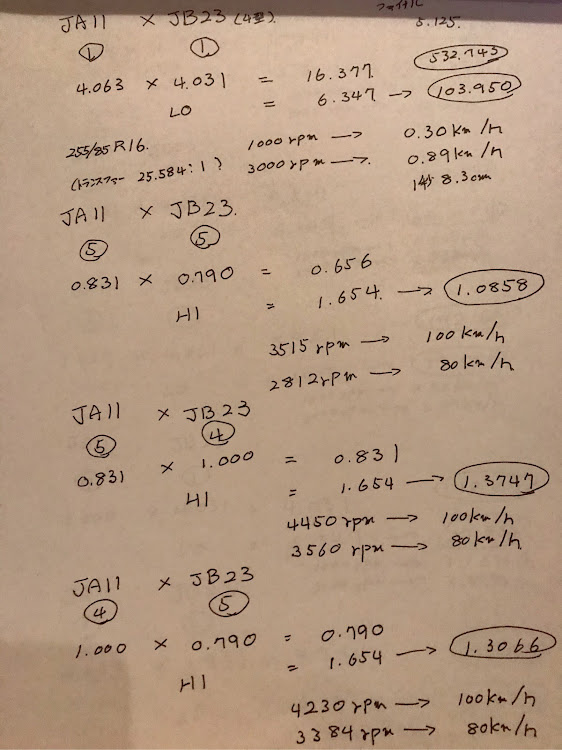 ファイナル
JA11 × JB23 (4型). 5.125.
① ①
532.743
4.063 × 4.031 = 16.377
LO = 6.347 → 103.950
255/85 R16. 1000 rpm → 0.30 km/h
(トランスファー 25.584:1?) 3000 rpm → 0.89 km/h
1秒 8.3cm
JA11 × JB23.
⑤ ⑤
0.831 × 0.790 = 0.656
HI = 1.654. → 1.0858
3515 rpm → 100 km/h
2812 rpm → 80 km/h
JA11 × JB23
⑤ ④
0.831 × 1.000 = 0.831
HI = 1.654 → 1.3747
4450 rpm → 100km/h
3560 rpm → 80km/h
JA11 × JB23
④ ⑤
1.000 × 0.790 = 0.790
HI = 1.654 → 1.3066
4230 rpm → 100km/h
3384 rpm → 80km/h